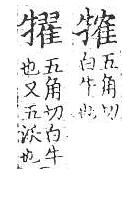 㹊
五角切
白牛也
五角切白牛
也又五沃也